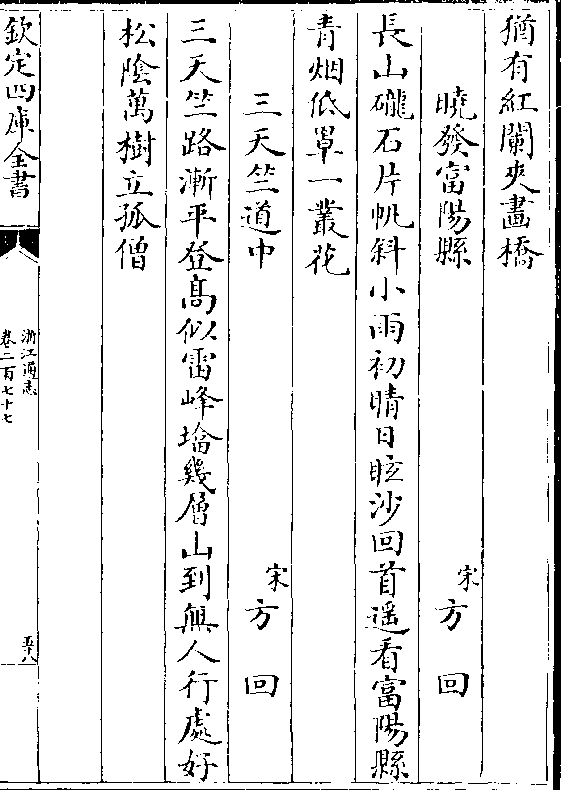 猶有紅闌夾畫橋
曉發富陽縣　宋方回
長山礲石片帆斜小雨初晴日眩沙回首遥看富陽縣
青烟低罩一叢花
三天竺道中　宋方回
三天竺路漸平登髙似雷峰塔幾層山到無人行處好
松陰萬樹立孤僧
欽定四庫全書
浙江通志
卷二百七十七